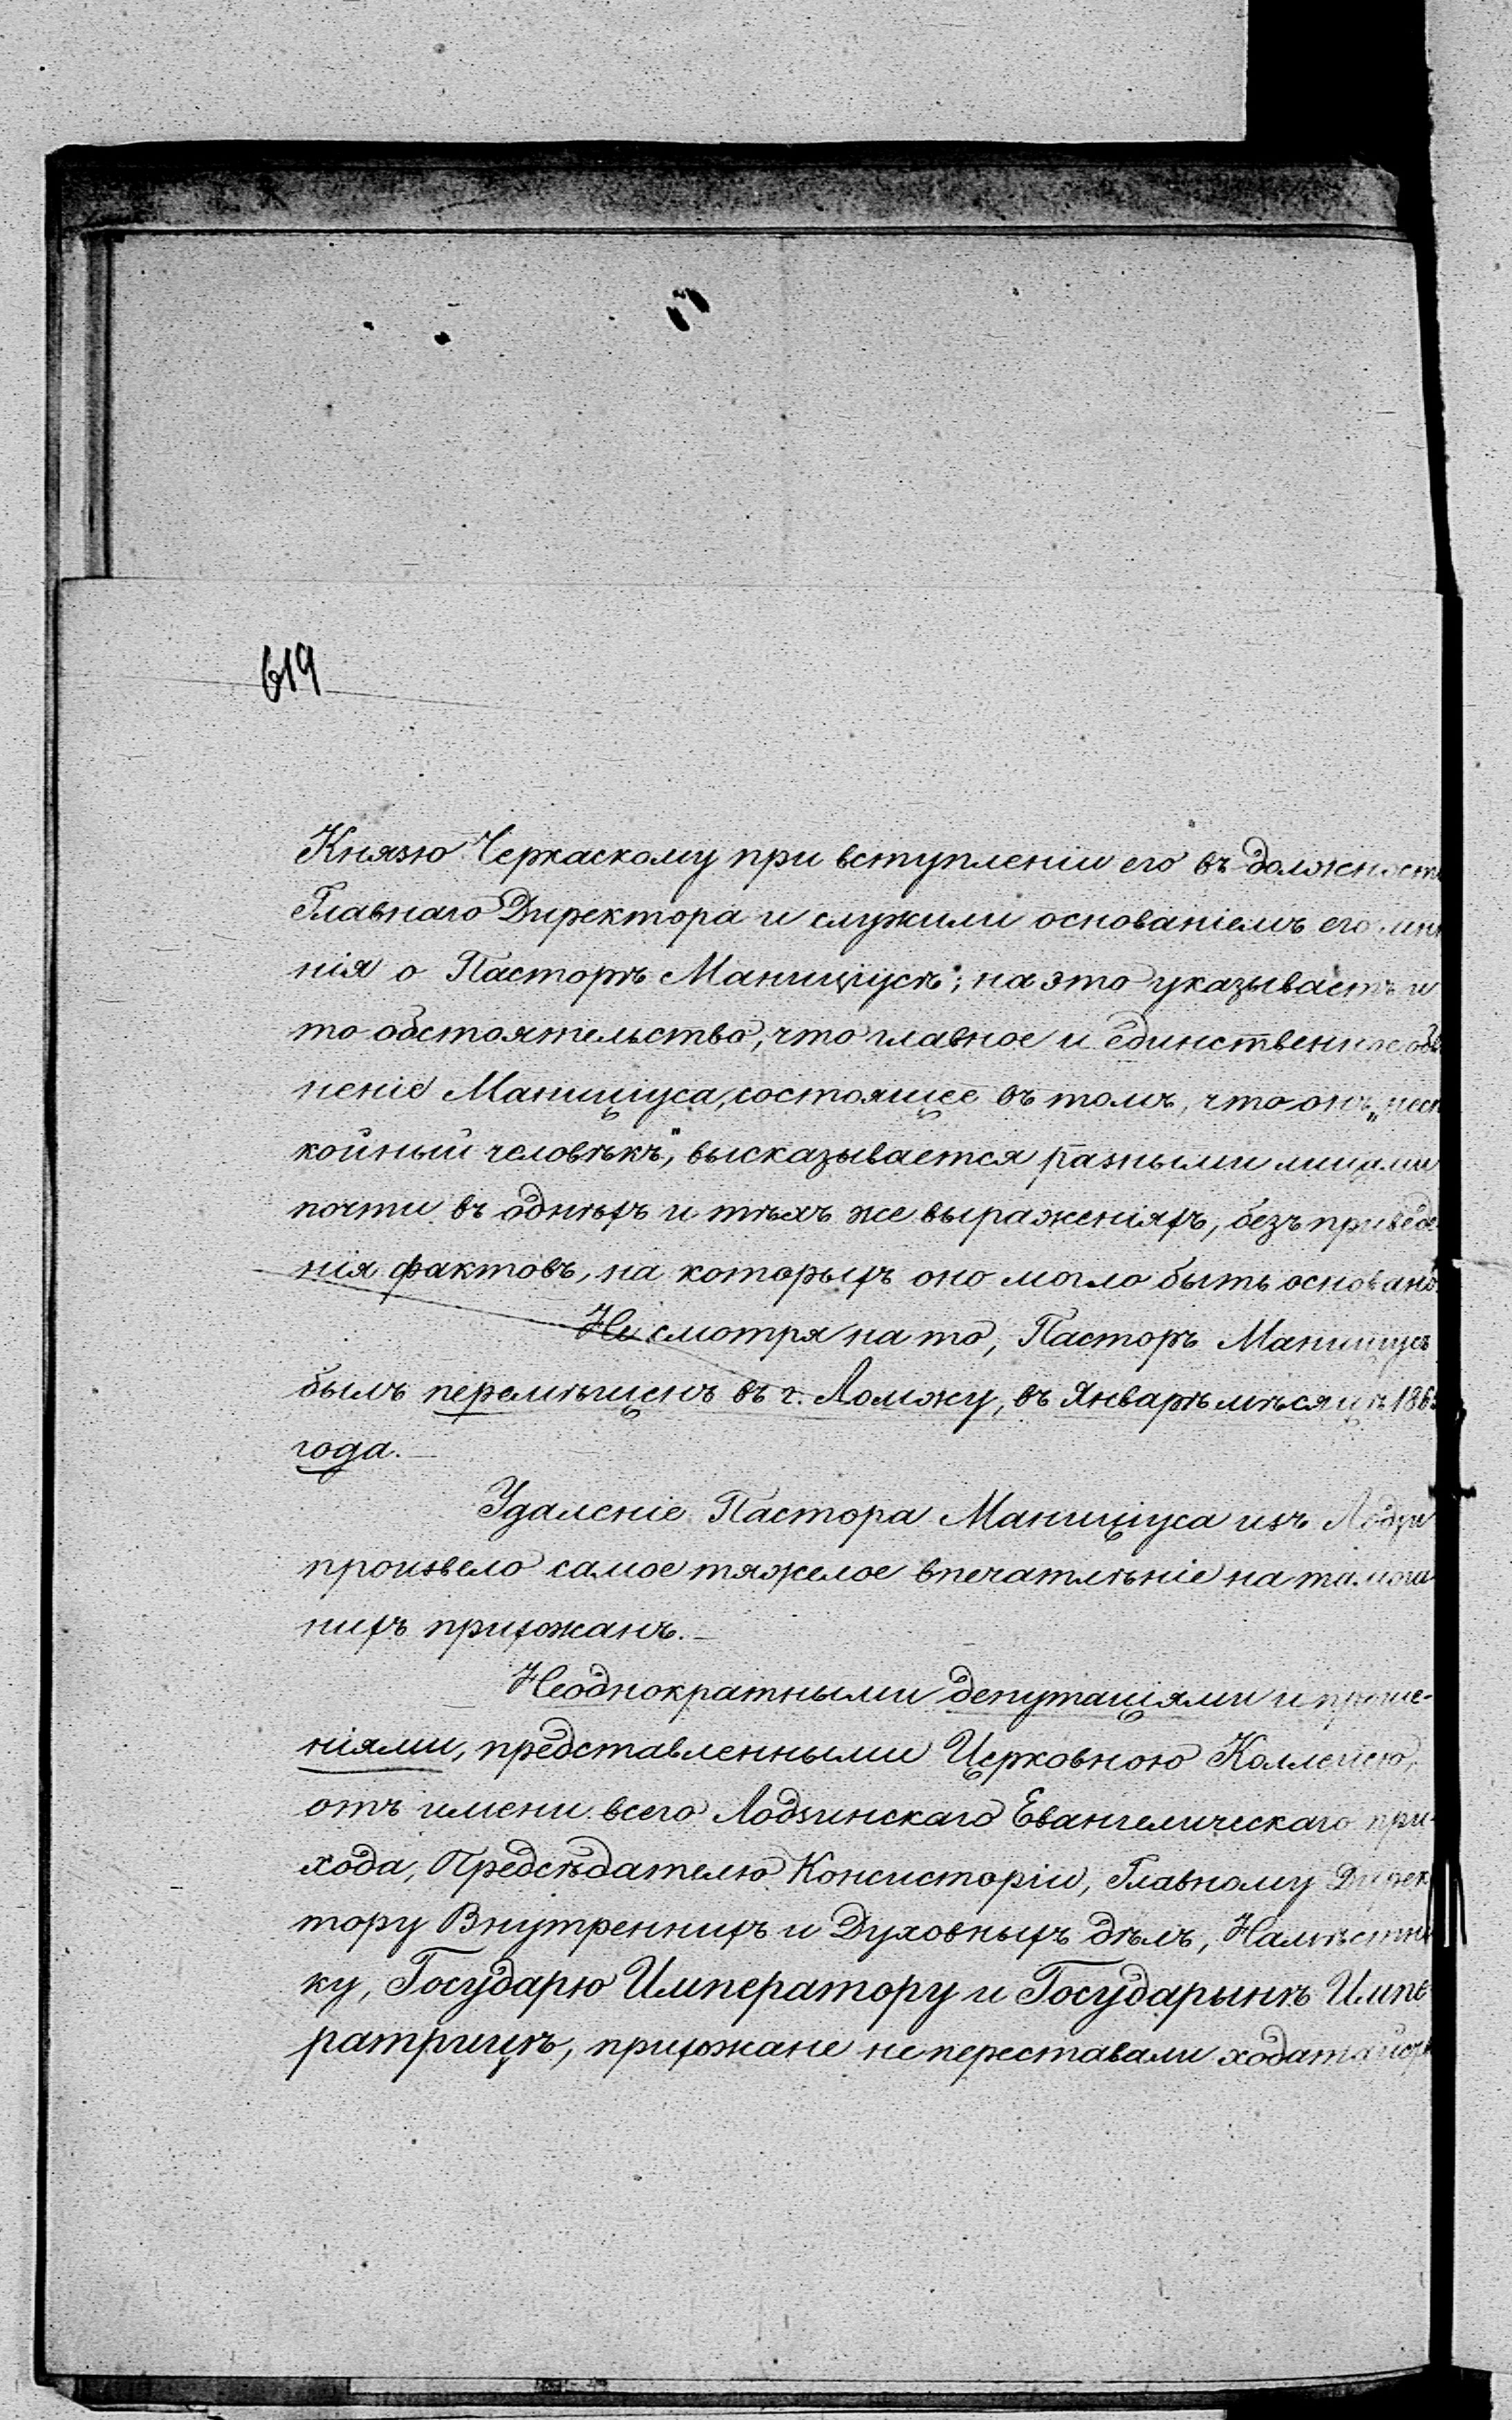 619
Князю Черкаскому при вступленіи его въ должност
Главнаго Директора и служили основаніемъ его мнѣ
нія о Пасторѣ Маниціусѣ; на это указываетъ и
то обстоятельство, что главное и единственное обв
неніе Маниціуса, состоящее въ томъ, что онъ „неспо
койный человѣкъ", высказывается разными лицами
почти въ однѣхъ и тѣхъ же выраженіяхъ, безъ приведе
нія фактовъ, на которыхъ оно могло быть основано.
Не смотря на то, Пасторъ Маниціусъ
былъ перемѣщенъ въ г. Ломжу, въ Январѣ мѣсяцѣ 186
года.
Удаленіе Пастора Маниціуса изъ Лодзи
произвело самое тяжелое впечатлѣніе на тамош
нихъ прихожанъ.
Неоднократными депутаціями и проше-
ніями, представленными Церковною Коллегіею,
отъ имени всего Лодзинскаго Евангелическаго при-
хода, Предсѣдателю Консисторіи, Главному Дирек
тору Внутреннихъ и Духовныхъ дѣлъ, Намѣстни
ку, Государю Императору и Государынѣ Импе
ратрицѣ, прихожане не переставали ходатайств